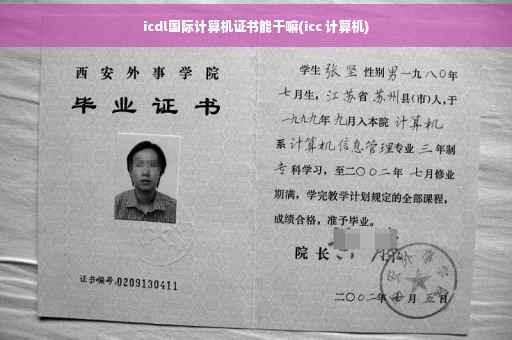 icdl国际计算机证书能干嘛(icc 计算机)
西安外事学院
毕业证书
证书编号:0209130411
学生 张坚 性别男一九八〇年
七月生,江苏省苏州县(市)人,于
一九九九年九月入本院 计算机
系计算机信息管理专业三年制
专科学习,至二〇〇二年七月修业
期满,学完教学计划规定的全部课程,
成绩合格,准予毕业。
院长
二〇〇二年 月五日